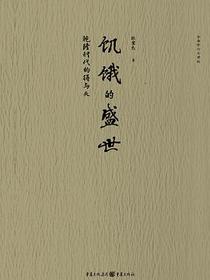 张宏杰 著
饥饿的盛世
乾隆时代的得与失
重庆出版集团 重庆出版社